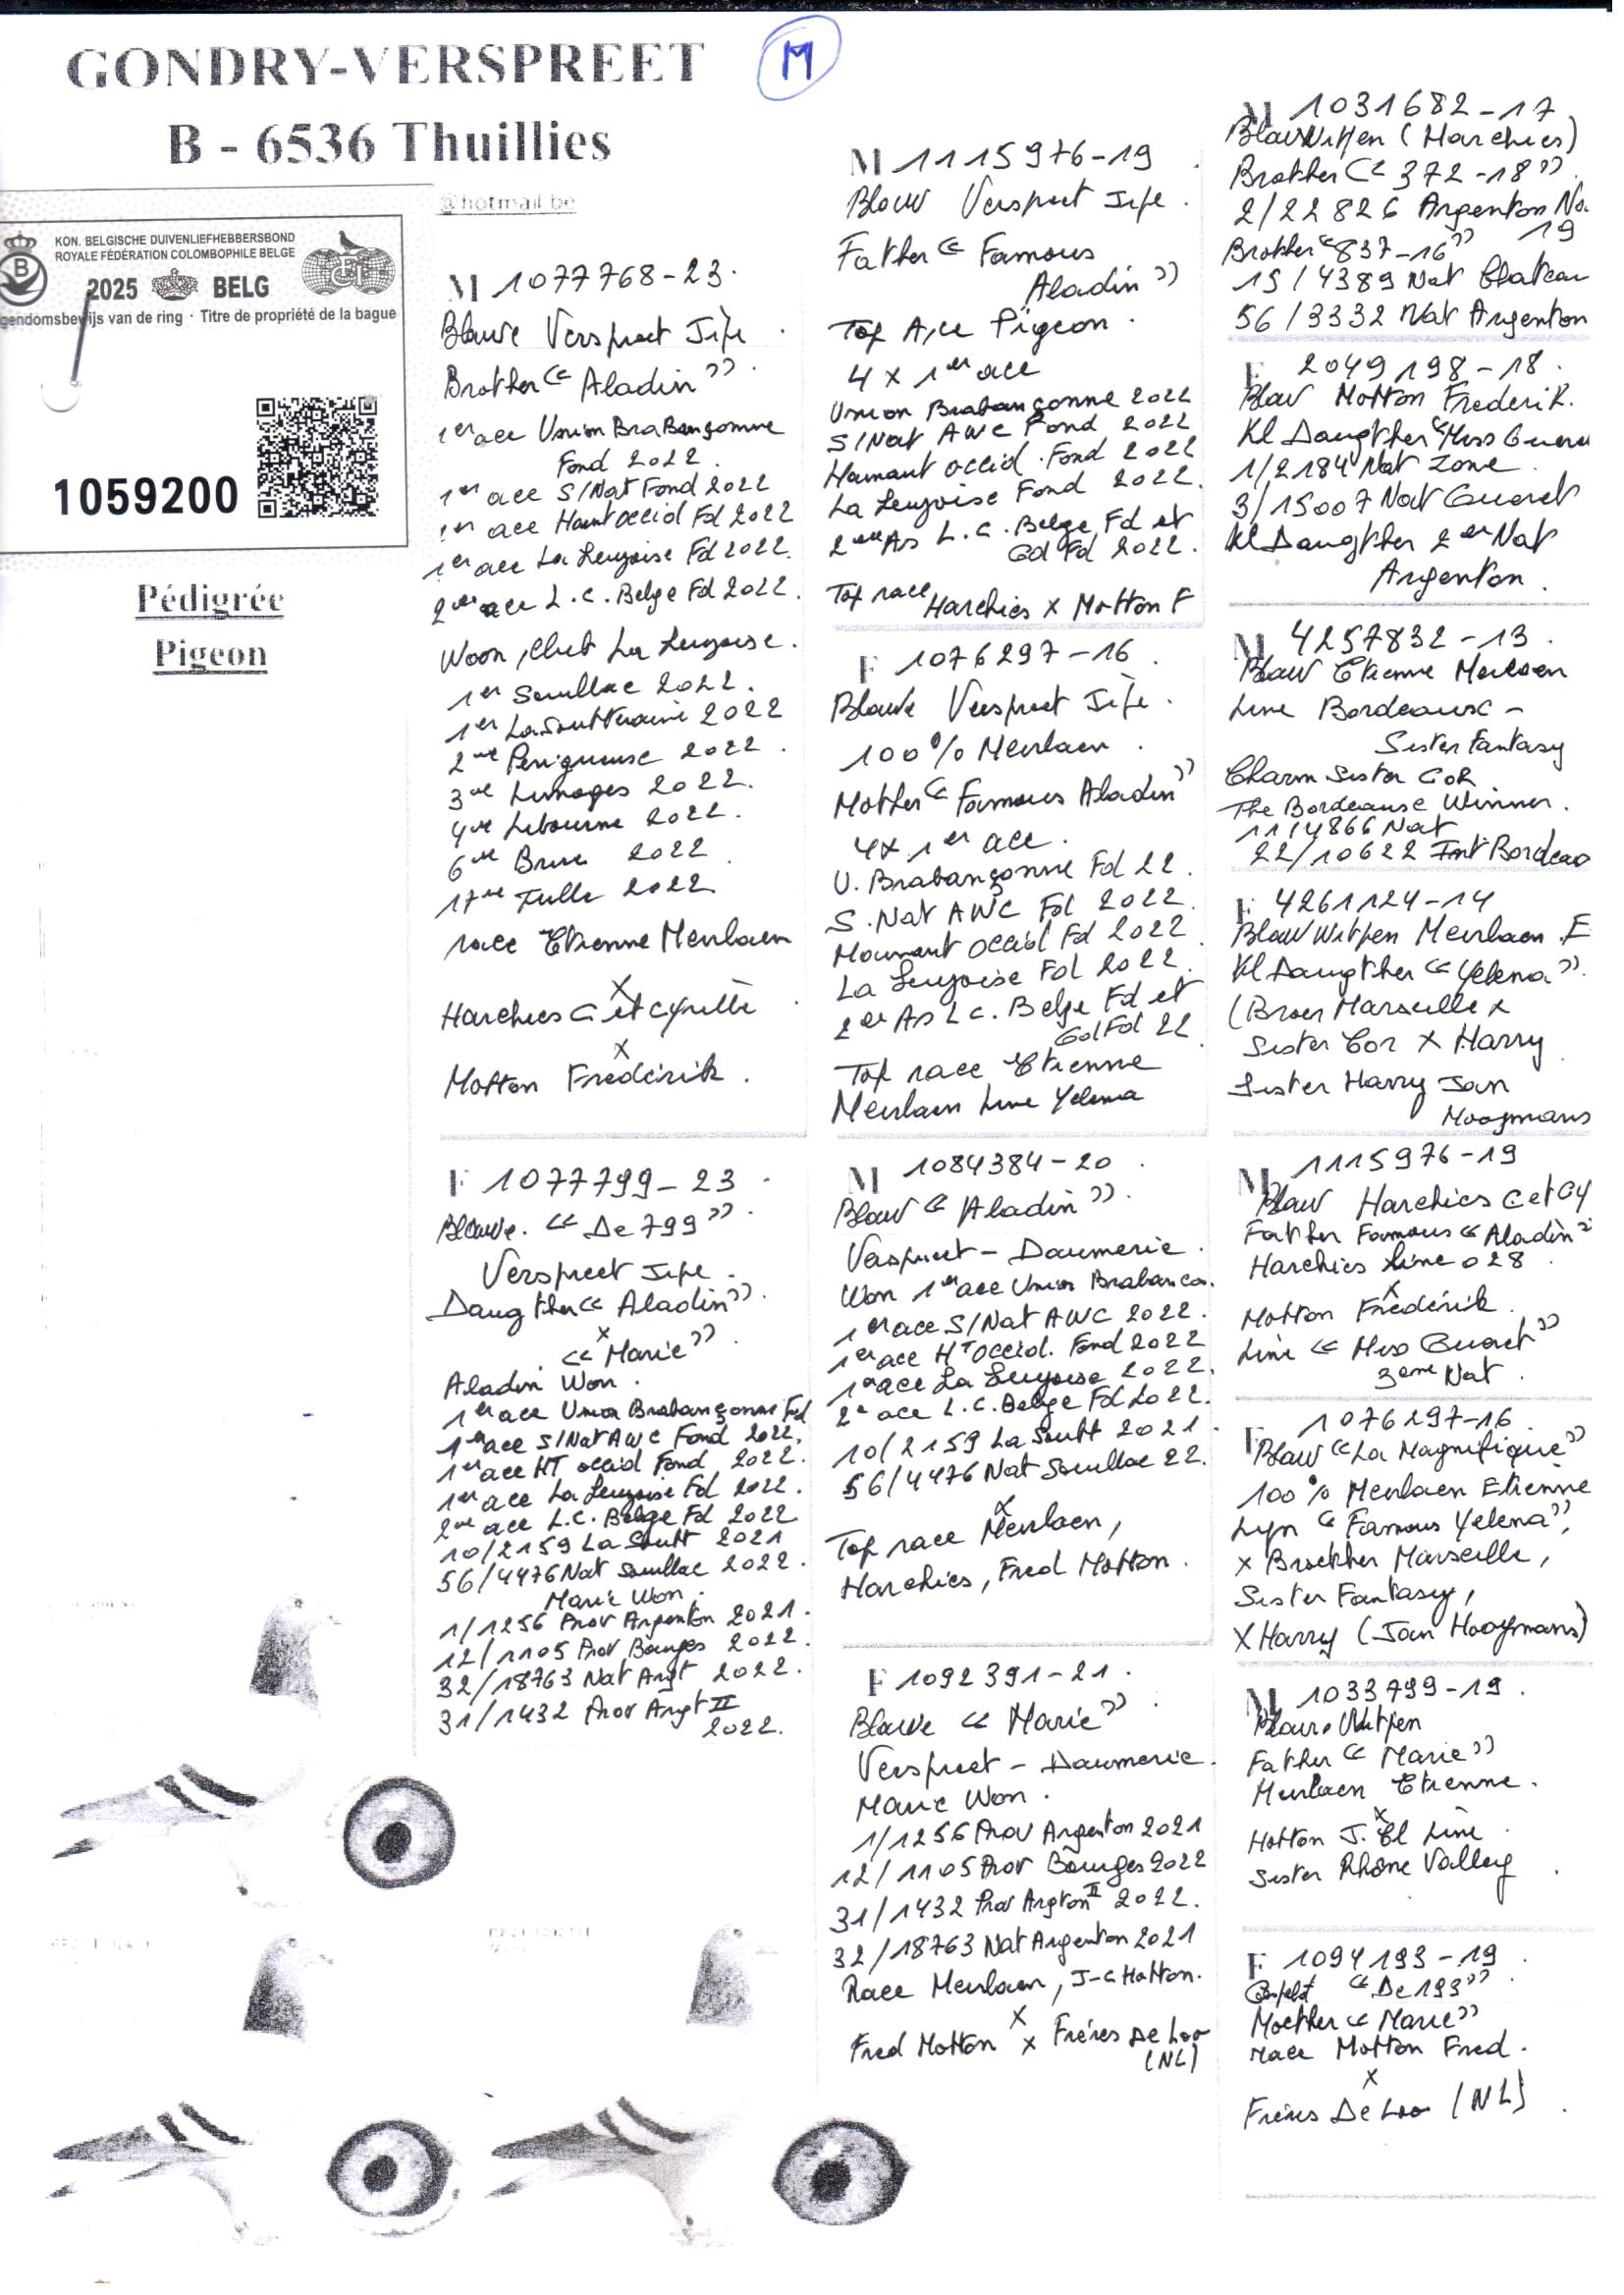 GONDRY-VERSPREET
M
B - 6536 Thuillies
@hotmail.be
KON. BELGISCHE DUIVENLIEFHEBBERSBOND
ROYALE FÉDÉRATION COLOMBOPHILE BELGE
2025 BELG
gendomsbewijs van de ring · Titre de propriété de la bague
1059200
Pédigrée
Pigeon
M 1077768-23.
Blauwe Verspreet Jifi
Brother « Aladin ».
1er ace Union Brabançonne
Fond 2022.
1er ace S/Nat Fond 2022
1er ace Haint Occid Fd 2022
1er ace La Leuzoise Fd 2022.
2eme ace L.C. Belge Fd 2022.
Woon, Club La Leuzoise.
1er Souillac 2022.
1er La Soutteraine 2022
2me Perigueuse 2022.
3me Limoges 2022.
4me Libourne 2022.
6me Brive 2022.
17me Tulle 2022.
race Etienne Meirlaen
x
Harchies C et Cyrille
x
Motton Fréderik.
F 1077799-23
Blauwe. « De 799 ».
Verspreet Jife.
Daugther « Aladin ».
x
« Marie ».
Aladin Won.
1er ace Union Brabançonne Fd
1er ace S/Nat AWC Fond 2022.
1er ace HT occid Fond 2022.
1er ace La Leuzoise Fd 2022.
2me ace L.C. Belge Fd 2022
10/2159 La Soutt 2021
56/4476 Nat Souillac 2022.
Marie Won.
1/1256 Prov Argenton 2021.
12/1105 Prov Bourges 2022.
32/18763 Nat Argt 2022.
31/1432 Prov Argt II
2022.
M 1115976-19
Blauw Verspreet Jife.
Father « Famous
Aladin »
Top Ace Pigeon.
4 x 1er ace
Union Brabançonne 2022
S/Nat AWC Fond 2022
Hainaut Occid. Fond 2022
La Leuzoise Fond 2022.
2eme As L.C. Belge Fd et
Gd Fd 2022.
Top race Harchies x Motton F
F 1076297-16.
Blauwe Verspreet Jife.
100% Meirlaen.
Mother « Famous Aladin »
4x 1er ace.
U. Brabançonne Fd 22.
S. Nat AWC Fd 2022.
Hainaut Occid Fd 2022
La Leuzoise Fd 2022.
2er As L.C. Belge Fd et
Gd Fd 22
Top race Etienne
Meirlaen Line Yelena
M 1084384-20.
Blauw « Aladin ».
Verspreet - Daumerie.
Won 1er ace Union Brabancon.
1er ace S/Nat AWC 2022.
1er ace HT Occid. Fond 2022
1er ace La Leuzoise 2022.
2e ace L.C. Belge Fd 2022.
10/2159 La Soutt 2021.
56/4476 Nat Souillac 22.
x
Top race Meirlaen,
Harchies, Fred Motton.
F 1092391-21.
Blauwe « Marie ».
Verspreet - Daumerie.
Marie Won.
1/1256 Prov Argenton 2021
12/1105 Prov Bourges 2022
31/1432 Prov Argton II 2022.
32/18763 Nat Argenton 2021
Race Meirlaen, J-C Hotton.
x
Fred Motton x Fréres De Loo
(NL)
M 1031682-17
Blauw Witpen (Harchies)
Brother « 372-18 ».
2/22826 Argenton Na.
19
Brother « 837-16 »
15/4389 Nat Chateau
56/3332 Nat Argenton
F 2049198-18.
Blauw Motton Frederik.
Kl Daugther « Miss Gueret
1/2184 Nat Zone.
3/15007 Nat Gueret
Kl Daugther 2er Nat
Argenton.
M 4257832-13.
Blauw Etienne Meirlaen
Line Bordeause -
Sister Fantasy
Charm Sister COR
The Bordeause Winner.
11/4866 Nat
22/10622 Int Bordeao
F 4261124-14
Blauw Witpen Meirlaen E
Kl Daugther « Yelena ».
(Broer Marseille x
Sister Cor x Harry
Sister Harry Jan
Hooymans
M 1115976-19
Blauw Harchies C et Cy
Father Famous « Aladin »
Harchies Line 028.
x
Motton Frédérik.
Line « Miss Gueret »
3eme Nat.
F 1076297-16
Blauw « La Magnifique »
100% Meirlaen Etienne
Lyn « Famous Yelena »,
x Broether Marseille,
Sister Fantasy,
x Harry (Jan Hooymans)
M 1033799-19.
Blauw Witpen
Father « Marie »
Meirlaen Etienne.
x
Hotton J. Cl Line.
Sister Rhône Valley.
F 1094193-19
« De 193 ».
Moether « Marie »
race Motton Fred.
x
Fréres De Loo (NL).